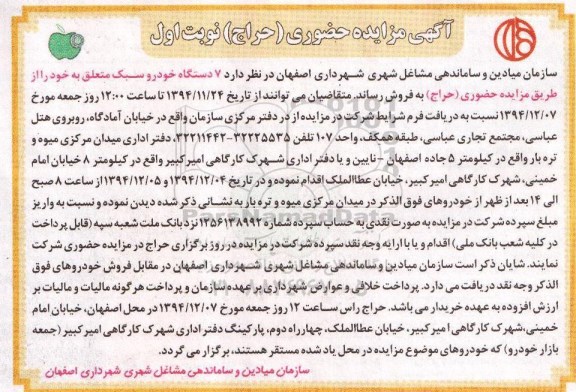 آگهی مزایده حضوری (حراج) نوبت اول
سازمان میادین و ساماندهی مشاغل شهری شهرداری اصفهان در نظر دارد ۷ دستگاه خودرو سبک متعلق به خود را از
طریق مزایده حضوری (حراج) به فروش رساند. متقاضیان می توانند از تاریخ ۱۳۹۴/۱۱/۲۴ تا ساعت ۱۲:۰۰ روز جمعه مورخ
۱۳۹۴/۱۲/۰۷ نسبت به دریافت فرم شرایط شرکت در مزایده از در دفتر مرکزی سازمان واقع در خیابان آمادگاه، روبروی هتل
عباسی، مجتمع تجاری عباسی، طبقه همکف، واحد ۱۰۷ تلفن ۳۲۲۲۵۵۳۵-۳۲۲۱۱۴۴۲، دفتر اداری میدان مرکزی میوه و
تره بار واقع در کیلومتر ۵ جاده اصفهان - نایین و یا دفتر اداری شهرک کارگاهی امیرکبیر واقع در کیلومتر ۸ خیابان امام
خمینی، شهرک کارگاهی امیر کبیر، خیابان عطاالملک اقدام نموده و در تاریخ ۱۳۹۴/۱۲/۰۴ و ۱۳۹۴/۱۲/۰۵ از ساعت ۸ صبح
الی ۱۴ بعد از ظهر از خودروهای فوق الذکر در میدان مرکزی میوه و تره بار به نشانی ذکر شده دیدن نموده و نسبت به واریز
مبلغ سپرده شرکت در مزایده به صورت نقدی به حساب سپرده شماره ۱۲۵۶۱۳۸۹۹۲ نزد بانک ملت شعبه سپه (قابل پرداخت
در کلیه شعب بانک ملی) اقدام و یا با ارایه وجه نقد سپرده شرکت در مزایده در روز برگزاری حراج در مزایده حضوری شرکت
نمایند. شایان ذکر است سازمان میادین و ساماندهی مشاغل شهری شهرداری اصفهان در مقابل فروش خودروهای فوق
الذکر وجه نقد دریافت می دارد. پرداخت خلافی و عوارض شهرداری بر عهده سازمان و پرداخت هر گونه مالیات و مالیات بر
ارزش افزوده به عهده خریدار می باشد. حراج راس ساعت ۱۲ روز جمعه مورخ ۱۳۹۴/۱۲/۰۷ در محل اصفهان، خیابان امام
خمینی، شهرک کارگاهی امیر کبیر، خیابان عطاالملک، چهارراه دوم، پارکینگ دفتر اداری شهرک کارگاهی امیرکبیر (جمعه
بازار خودرو) که خودروهای موضوع مزایده در محل یاد شده مستقر هستند، برگزار می گردد.
سازمان میادین و ساماندهی مشاغل شهری شهرداری اصفهان